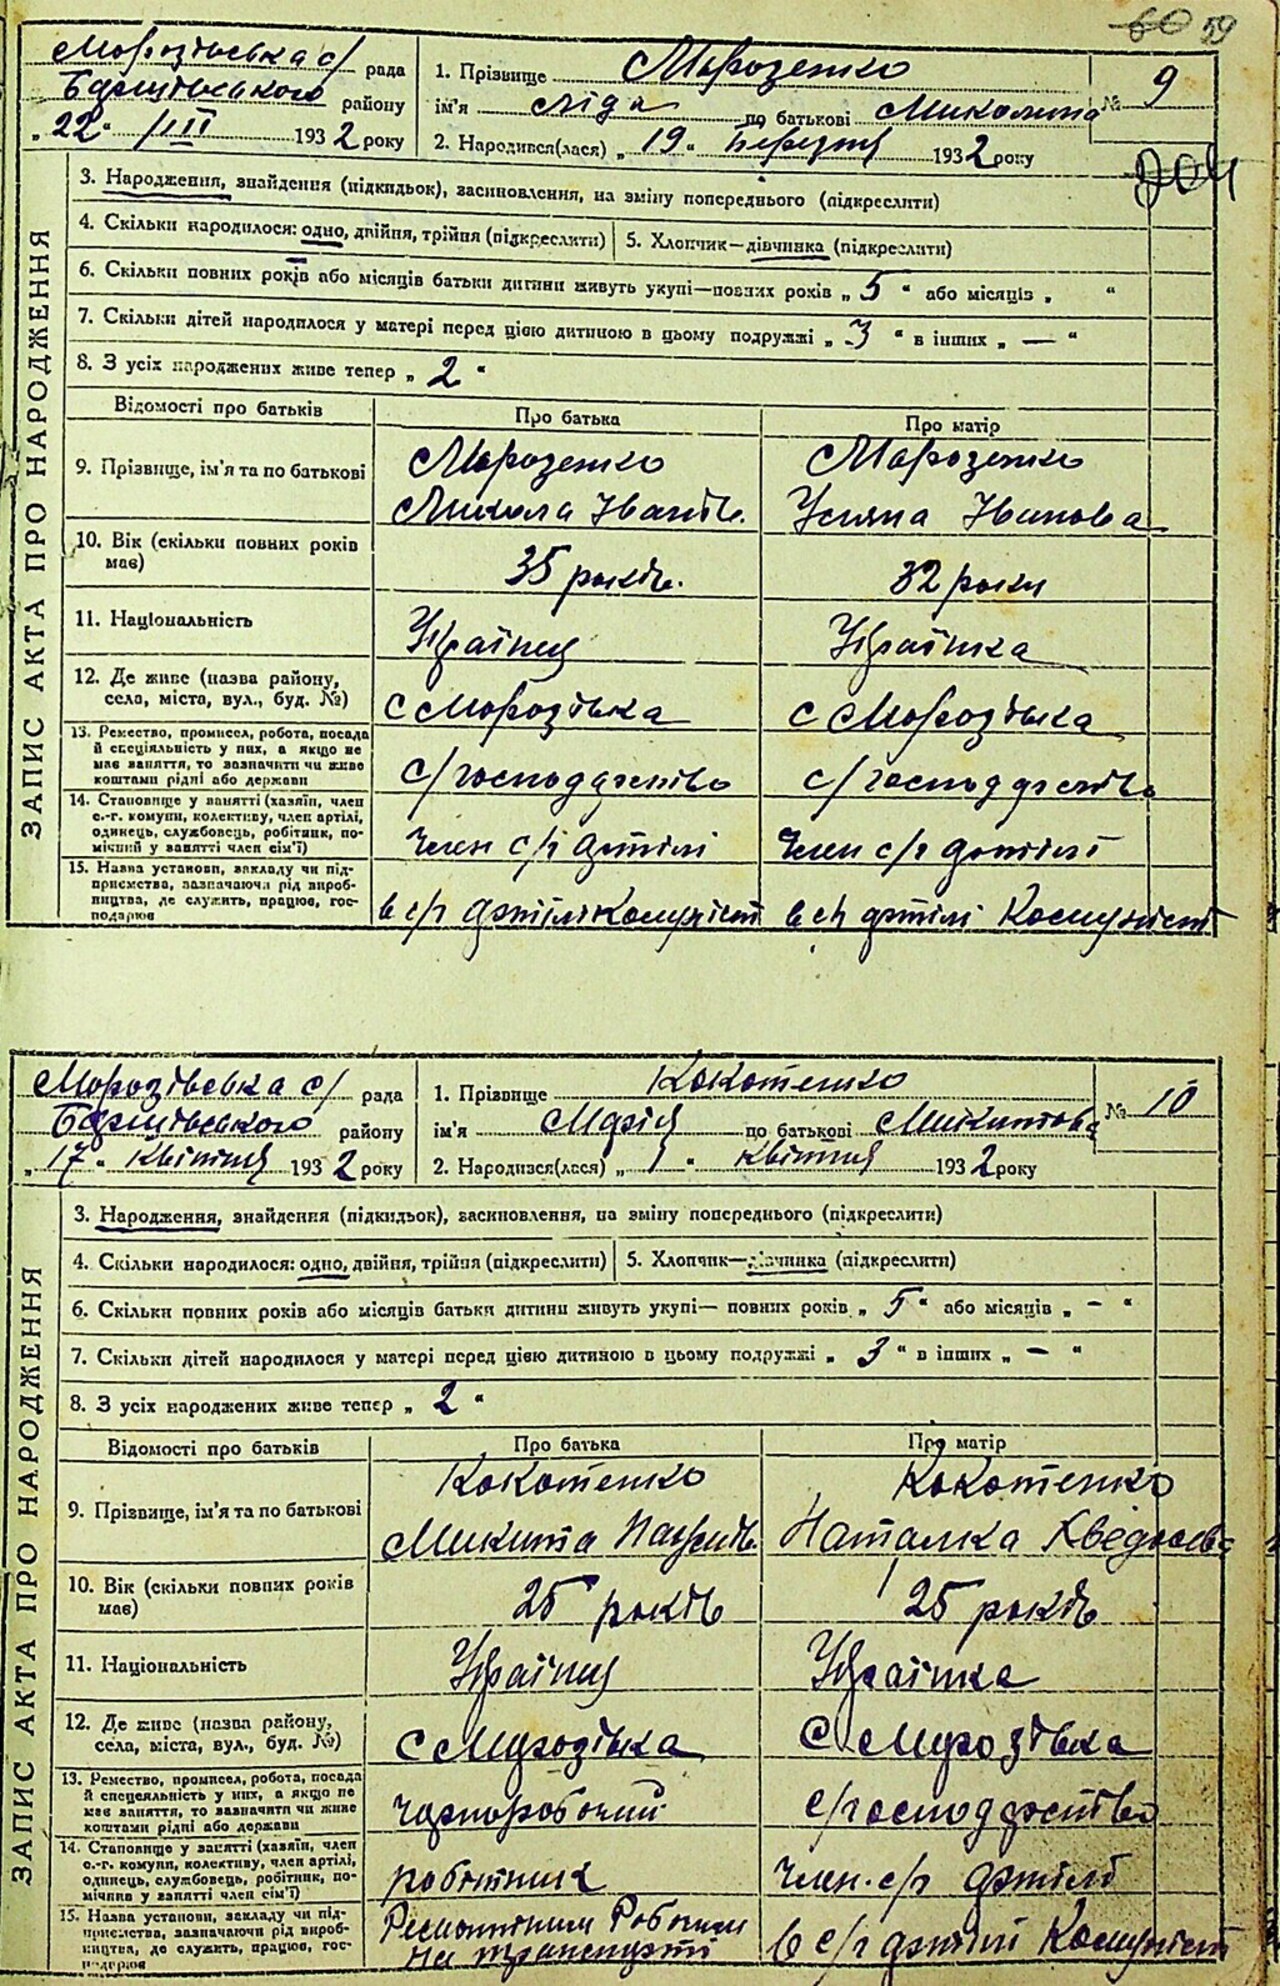 60 59
Морозівська с/ рада
Баришівського району
„22“ III 1932 року
1. Прізвище Морозенко
ім'я Ліда по батькові Миколина
№ 9
2. Народився(лася) „19“ Березня 1932 року
3. Народження, знайдення (підкидьок), засиновлення, на зміну попереднього (підкреслити)
4. Скільки народилося: одно, двійня, трійня (підкреслити) 5. Хлопчик—дівчинка (підкреслити)
6. Скільки повних років або місяців батьки дитини живуть укупі—повних років „5“ або місяців „ “
7. Скільки дітей народилося у матері перед цією дитиною в цьому подружжі „3“ в інших „—“
8. З усіх народжених живе тепер „2“
ЗАПИС АКТА ПРО НАРОДЖЕННЯ
Відомості про батьків Про батька Про матір
9. Прізвище, ім'я та по батькові
Морозенко Морозенко
Микола Іванів. Уляна Іванова
10. Вік (скільки повних років має)
35 років. 32 роки
11. Національність
Українця Українка
12. Де живе (назва району,
села, міста, вул., буд. №)
с Морозівка с Морозівка
13. Ремество, промисел, робота, посада
й спеціяльність у них, а якщо не
має заняття, то зазначити чи живе
коштами рідні або держави
с/господарство с/господарство
14. Становище у занятті (хазяїн, член
с.-г. комуни, колективу, член артілі,
одинець, службовець, робітник, по-
мічний у занятті член сім'ї)
Член с/г артілі Член с/г артілі
15. Назва установи, закладу чи під-
приємства, зазначаючи рід вироб-
ництва, де служить, працює, гос-
подарює
в с/г артілі Комуніст в с/г артілі Комуніст
Морозівська с/ рада
Баришівського району
„17“ Квітня 1932 року
1. Прізвище Кокотенко
ім'я Марія по батькові Микитова
№ 10
2. Народився(лася) „1“ Квітня 1932 року
3. Народження, знайдення (підкидьок), засиновлення, на зміну попереднього (підкреслити)
4. Скільки народилося: одно, двійня, трійня (підкреслити) 5. Хлопчик—дівчинка (підкреслити)
6. Скільки повних років або місяців батьки дитини живуть укупі— повних років „5“ або місяців „-“
7. Скільки дітей народилося у матері перед цією дитиною в цьому подружжі „3“ в інших „-“
8. З усіх народжених живе тепер „2“
ЗАПИС АКТА ПРО НАРОДЖЕННЯ
Відомості про батьків Про батька Про матір
9. Прізвище, ім'я та по батькові
Кокотенко Кокотенко
Микита Наталка
10. Вік (скільки повних років має)
25 років 25 років
11. Національність
Українця Українка
12. Де живе (назва району,
села, міста, вул., буд. №)
с Морозівка с Морозівка
13. Ремество, промисел, робота, посада
й спецеяльність у них, а якщо не
має заняття, то зазначити чи живе
коштами рідні або держави
чорноробочий с/господарство
14. Становище у занятті (хазяїн, член
с.-г. комуни, колективу, член артілі,
одинець, службовець, робітник, по-
мічник у занятті член сім'ї)
робітник Член с/г артілі
15. Назва установи, закладу чи під-
приємства, зазначаючи рід вироб-
ництва, де служить, працює, гос-
подарює
Ремонтним Робочим
на транспорті в с/г артілі Комуніст